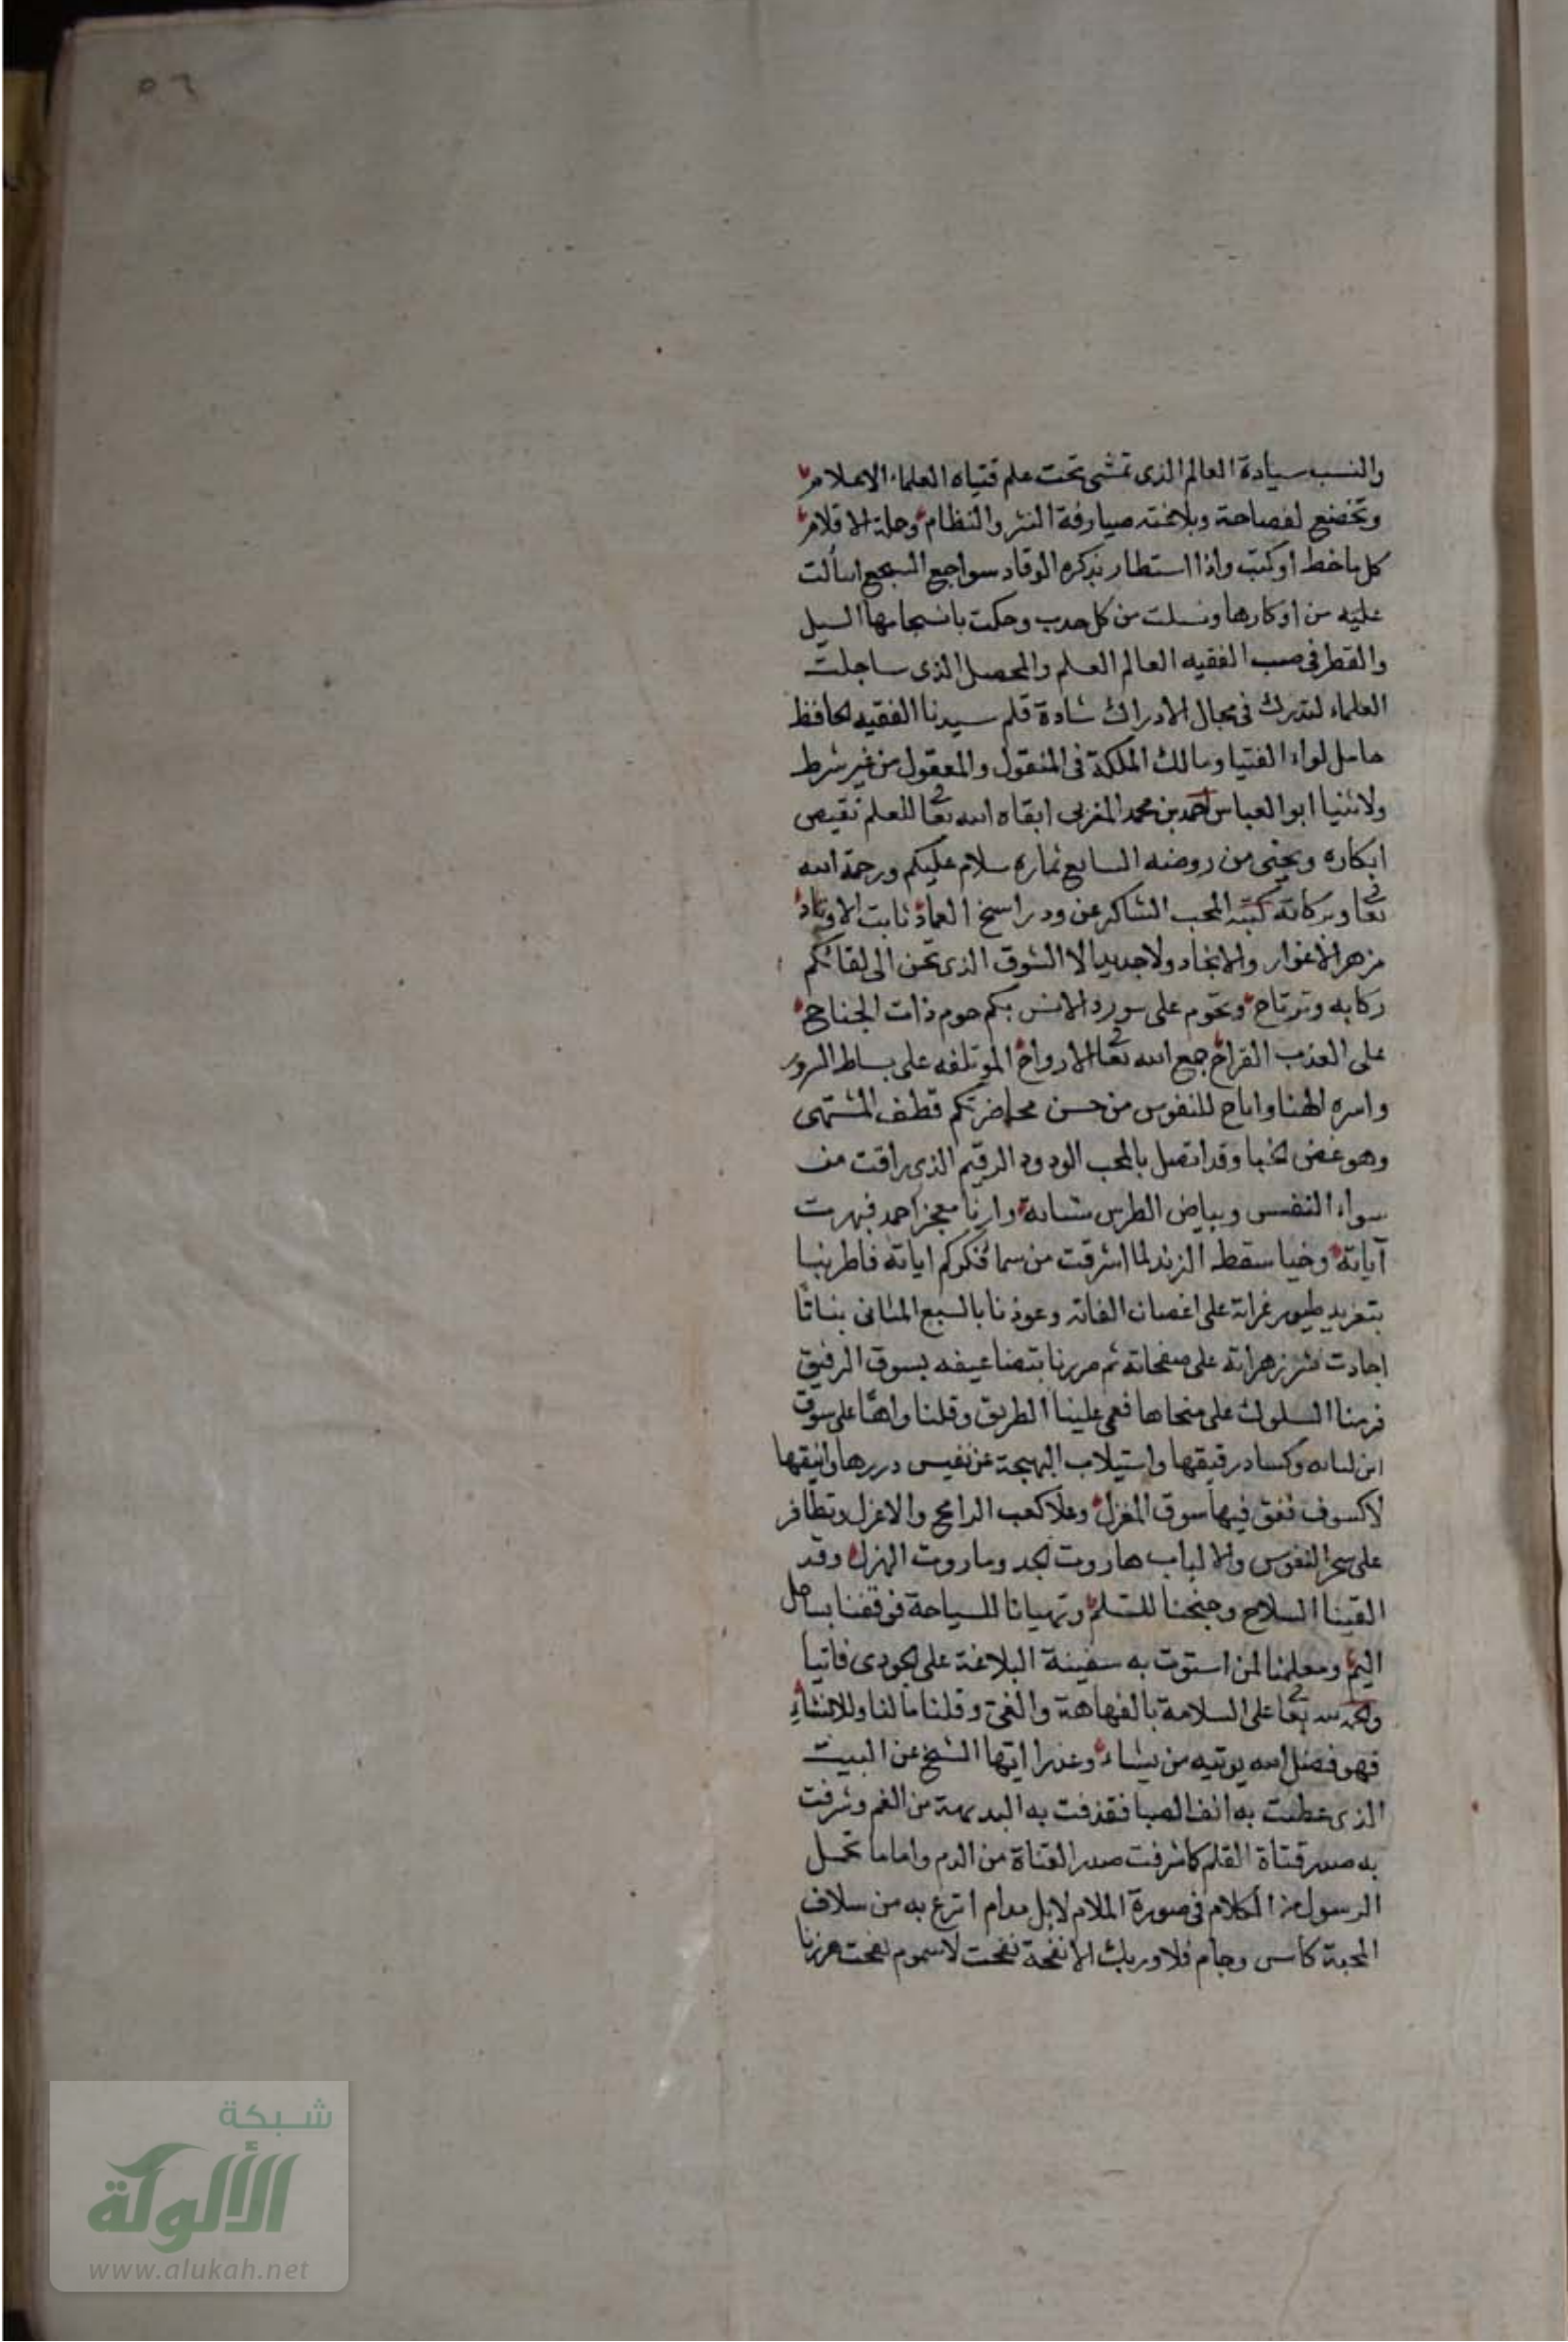 ٥٦
والنسب سيادة العالم الذى تمشى تحت علم فتياه العلماء الاعلام
وتخضع لفصاحة وبلاغته صيارفة النثر والنظام وحملة الاقلام
كل ما خط او كتب واذا استطار بذكره الوقاد سواجع السجع انسالت
عليه من اوكارها ونسلت من كل حدب وحكت بانسجامها السيل
والقطر فى صبب الفقيه العالم العلم والمحصل الذى ساجلت
العلماء لتدرك فى مجال الادراك شاوه فلم سيدنا الفقيه الحافظ
حامل لواء الفتيا ومالك الملكة فى المنقول والمعقول من غير شرط
ولا ثنيا ابو العباس احمد بن محمد المغربى ابقاه الله تعا للعلم تقيص
ابكاره ويجنى من روضه اليانع ثماره سلام عليكم ورحمة الله
تعا وبركاته كتبه المحب الشاكر عن ود راسخ العماد ثابت الاوتاد
مزهر الاغوار والانجاد ولا جديد الا الشوق الذى تحن الى لقائكم
ركابه وترتاح وتحوم على مورد الانس بكم حوم ذات الجناح
على العذب القراح جمع الله تعا الارواح الموتلفه على بساط السرور
واسره الهنا واباح للنفوس من حسن محاضرتكم قطف المشتهى
وهو غض الجنا وقد اتصل بالمحب الودود الرقيم الذى راقت من
سواد النفس وبياض الطرس شياته وارانا معجز احمد فبهرت
آياته وخبا سقط الزند لما اشرقت من سما فكركم اياته فاطربنا
بتغريد طيور غراته على اغصان الفاته وعوذنا بالسبع المثانى بناتا
اجادت نثر زهراته على صفحاته ثم مررنا بتضاعيفه بسوق الرقيق
فرمنا السلوك على منحاها فعمى علينا الطريق وقلنا واها على سوق
ابن لباله وكساد رقيقها واستيلاب البهجة عن نفيس دررها وانيقها
لا كسوف نفق فيها سوق المغزل وعلا كعب الرامح والاعزل وتظافر
على سحر النفوس والالباب هاروت الجد وماروت الهزل وقد
القينا السلاح وجنحنا للسلم وتهيانا للسباحة فوقفنا بساحل
اليم وسلمنا لمن استوت به سفينة البلاغة على الجودى فاتيا
والحمد لله تعا على السلامة بالفهاهة والعى وقلنا ما لنا وللانشاء
فهو فضل الله يوتيه من يشاء وعذرا ايها الشيخ عن البيت
الذى عطست به انف الصبا فقذفت به البديهة من الفم وشرفت
به صدر قناة القلم كما شرفت صدر القناة من الدم واما ما تحمل
الرسول من الكلام فى صورة الملام لا بل مدام اترع به من سلاف
المحبة كاس وجام فلا وربك الا نفحة نفحت لا سموم لفحت هززنا
شبكة
الألوكة
www.alukah.net